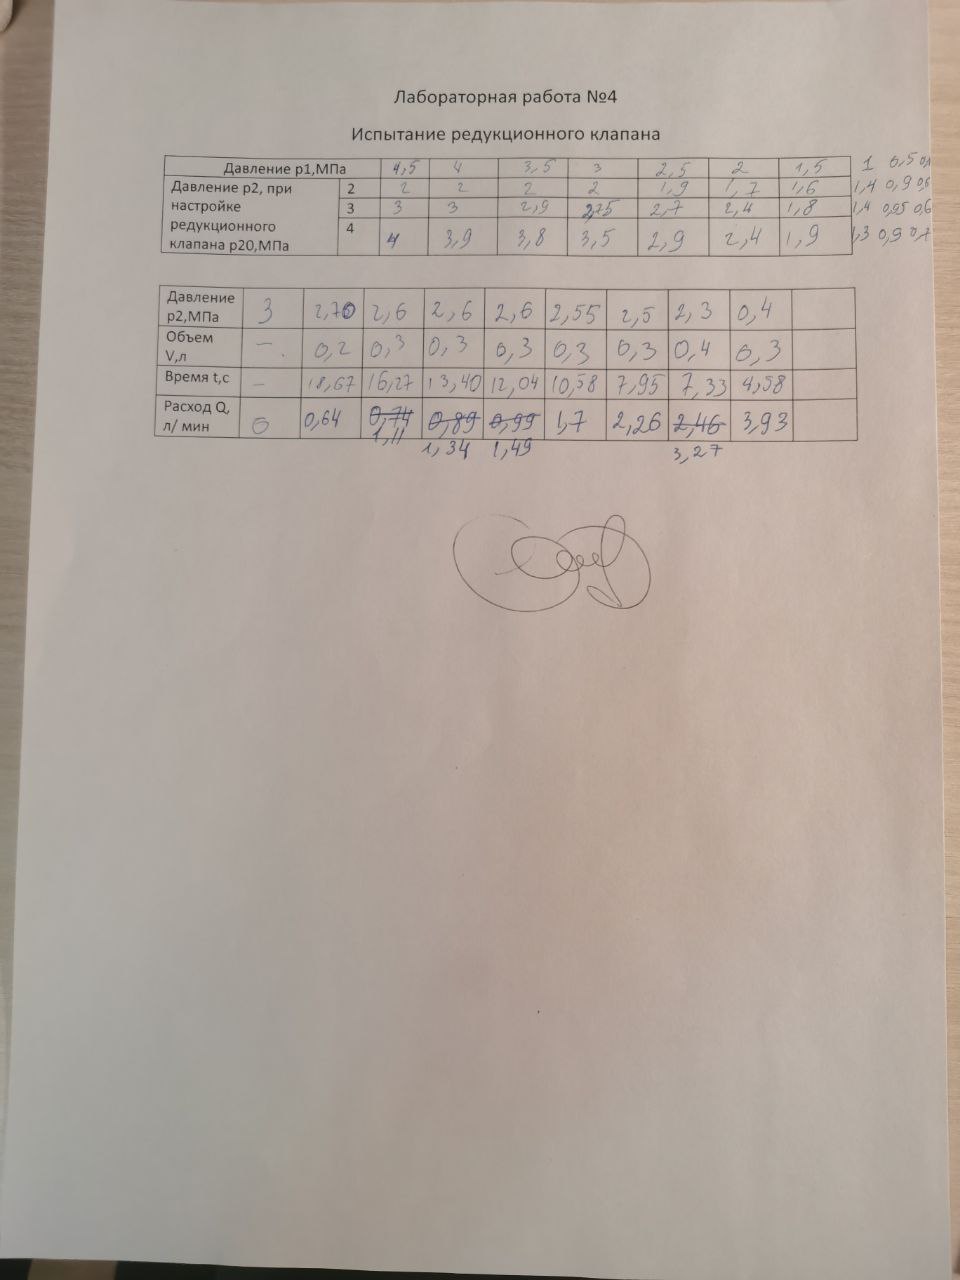 Лабораторная работа №4
Испытание редукционного клапана
Давление p1,МПа 4,5 4 3,5 3 2,5 2 1,5 1 0,5
Давление p2, при настройке редукционного клапана p20,МПа
2 2 2 2 2 1,9 1,7 1,6 1,4 0,9 0,6
3 3 3 2,9 2,75 2,7 2,4 1,8 1,4 0,95 0,6
4 4 3,9 3,8 3,5 2,9 2,4 1,9 1,3 0,9 0,7
Давление p2,МПа 3 2,70 2,6 2,6 2,6 2,55 2,5 2,3 0,4
Объем V,л – 0,2 0,3 0,3 0,3 0,3 0,3 0,4 0,3
Время t,с – 18,67 16,27 13,40 12,04 10,58 7,95 7,33 4,58
Расход Q, л/ мин 0 0,64 0,74 0,89 0,99 1,7 2,26 2,46 3,93
1,11 1,34 1,49 3,27